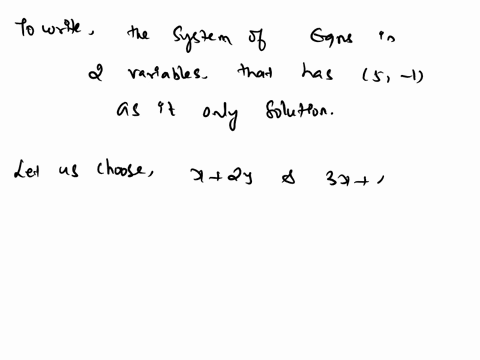 To write, the System of Eqns in
2 variables. that has (5, -1)
as it only Solution.
Let us choose, x + 2y & 3x +